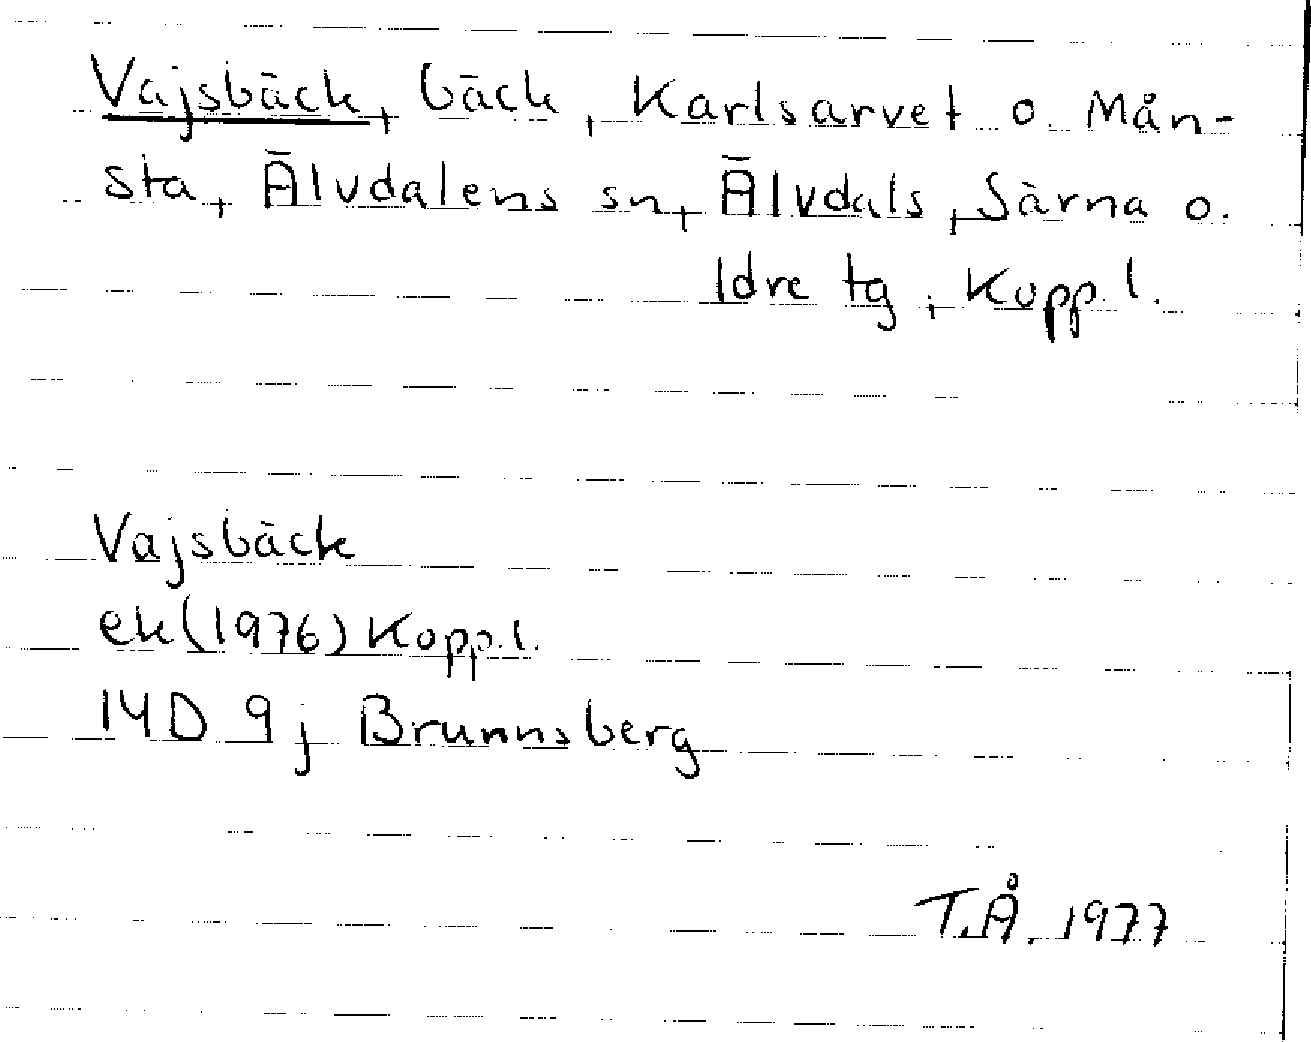 Vajsbäck, bäck, Karlsarvet o. Mån-
sta, Älvdalens sn, Älvdals, Särna o.
Idre tg, Kopp. l.
Vajsbäck
ek (1976) Kopp. l.
14D 9j Brunnsberg
T.Å. 1977